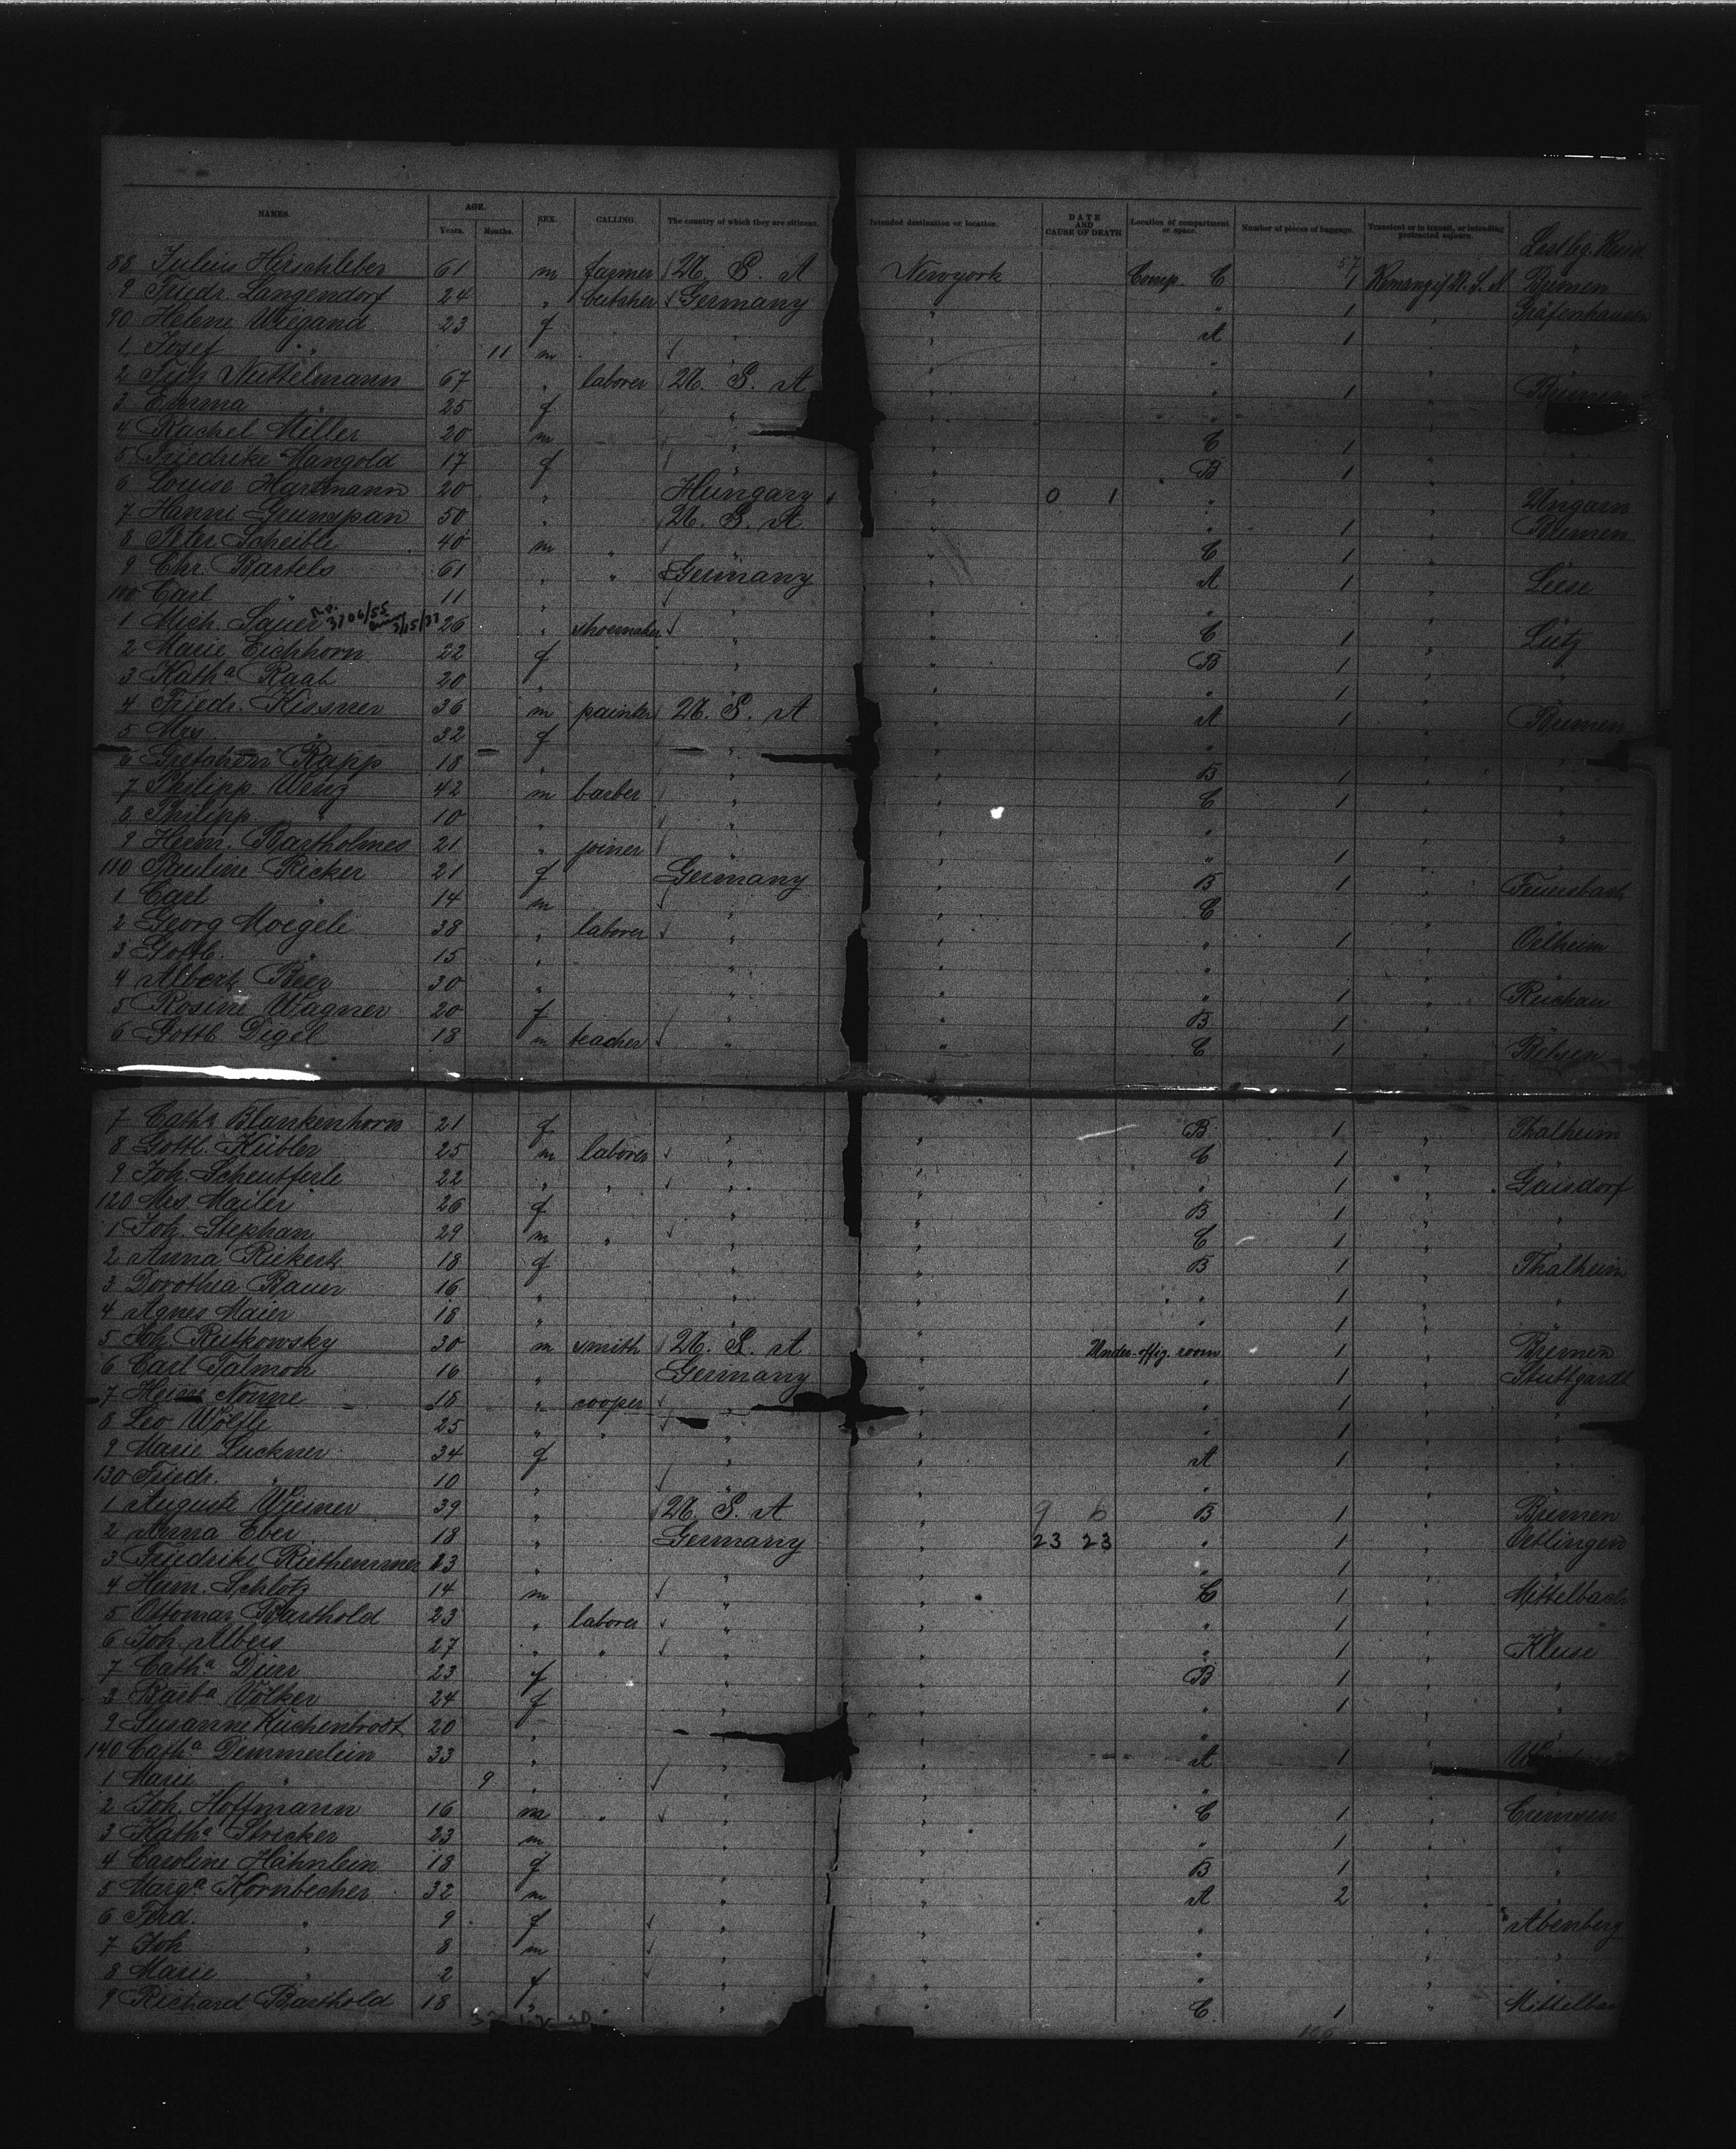 NAMES. AGE. Years. Months. SEX. CALLING. The country of which they are citizens. Intended destination or location. DATE AND CAUSE OF DEATH Location of compartment or space. Number of pieces of baggage. Transient or in transit, or intending protracted sojourn.
88 Julius Hirschleber 61 m farmer U. S. A Newyork Comp. C 1 Bremen
9 Friedr. Langendorf 24 " butsher Germany " " 1 " Gräfenhausen
90 Helene Wiegand 23 f " " A 1 " "
1 Josef " 11 m " "
2 Nuttelmann 67 " laborer U. S. A " " 1 " Bremen
3 Emma " 25 f " " "
4 Rachel Miller 20 m " " C 1 "
5 Friedrike Mangold 17 f " " B 1 "
6 Louise Hartmann 20 " Hungary " 0 1 " Ungarn
7 Hanni Grunspan 50 " U. S. A " " 1 " Bremen
8 Peter Scheible 40 m " " " C 1 "
9 Chr. Bartels 61 " " Germany " A 1 " Leese
100 Carl " 11 " " " "
1 Mich. Sauer 26 " shoemaker " " C 1 " Lütz
2 Marie Eichhorn 22 f " " B 1 " "
3 Kath a Raab 20 " " " " 1 " "
4 Friedr. Kissner 36 m painter U. S. A " A 1 " Bremen
5 Mrs. " 32 f " " "
6 Gretchen Rapp 18 " " " B 1 " "
7 Philipp Wenz 42 m barber " " C 1 " "
8 Philipp " 10 " " " "
9 Herm. Bartholmes 21 " joiner " " " 1 "
110 Pauline Ricker 21 f Germany " B 1 " Feuerbach
1 Carl " 14 m " " C
2 Georg Moegele 38 " laborer " " " 1 " Oelheim
3 Gottl. " 15 " " " "
4 Albert Beer 30 " " " " 1 " Reichau
5 Rosine Wagner 20 f " " B 1 " "
6 Gottl. Digel 18 m teacher " " C 1 " Belsen
7 Cath a Blankenhorn 21 f " " B 1 " Thalheim
8 Gottl. Kübler 25 m laborer " " C 1 " "
9 Joh. Scheufferle 22 " " " " " 1 " Gaisdorf
120 Mrs. Mailer 26 f " " B 1 " "
1 Joh. Stephan 29 m " " " C 1 " "
2 Anna Riekert 18 f " " B 1 " Thalheim
3 Dorothea Bauer 16 " " " " 1 " "
4 Agnes Maier 18 " " " " 1 " "
5 Joh. Rutkowsky 30 m smith U. S. A " Under-offiz. room 1 " Bremen
6 Carl Talmon 16 " Germany " " 1 " Stuttgardt
7 Nonne 18 " cooper " " " 1 " "
8 Leo Wölfle 25 " " " " " 1 " "
9 Marie Luckner 34 f " " A 1 " "
130 Friedr. " 10 " " " "
1 Auguste Wiener 39 " U. S. A " 9 6 B 1 " Bremen
2 Anna Eber 18 " Germany " 23 23 " 1 " Oetlingen
3 Friedrike Riethemmer 23 " " " " 1 " "
4 Herm. Schlotz 14 m " " C 1 " Mittelbach
5 Ottomar Barthold 23 " laborer " " " 1 " "
6 Joh. Albers 27 " " " " " 1 " Kluse
7 Cath a Dürr 23 f " " B 1 " "
8 Barb a Völker 24 f " " " 1 " "
9 Susanne Küchenbrodt 20 " " " "
140 Cath a Demmerlein 33 " " " A 1 "
1 Marie " 9 " " " "
2 Joh. Hoffmann 16 m " " " C 1 "
3 Kath a Stricker 23 m " " " 1 " "
4 Caroline Hähnlein 18 f " " B 1 " "
5 Marg a Kornbecher 32 m " " A 2 "
6 Ferd. " 9 f " " " " Abenberg
7 Joh " 8 m " " " " "
8 Marie " 2 f " " " " "
9 Richard Barthold 18 " " " " C 1 "